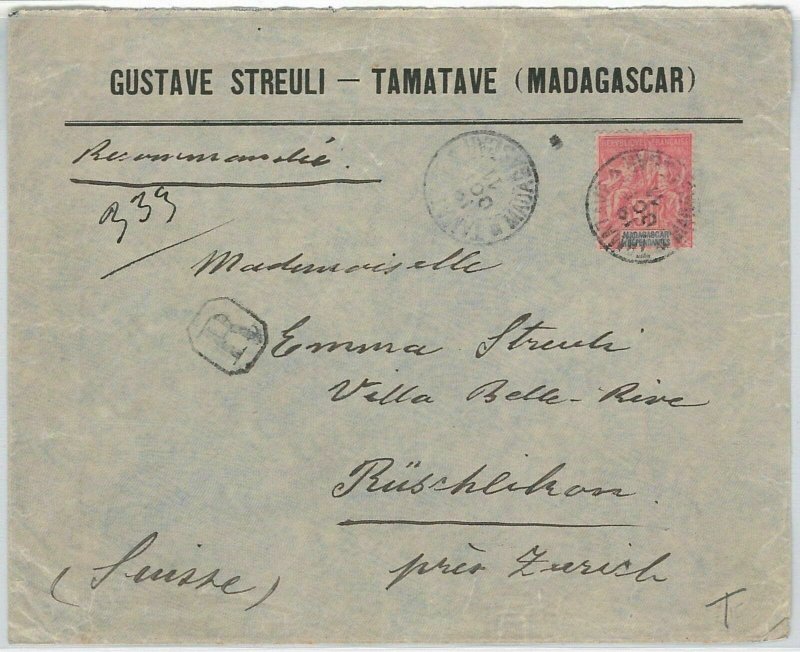 GUSTAVE STREULI — TAMATAVE (MADAGASCAR)
Recommandée
333
Mademoiselle
R
Emma Streuli
Villa Belle-Rive
Rüschlikon
près Zurich
(Suisse)
T
MADAGASCAR